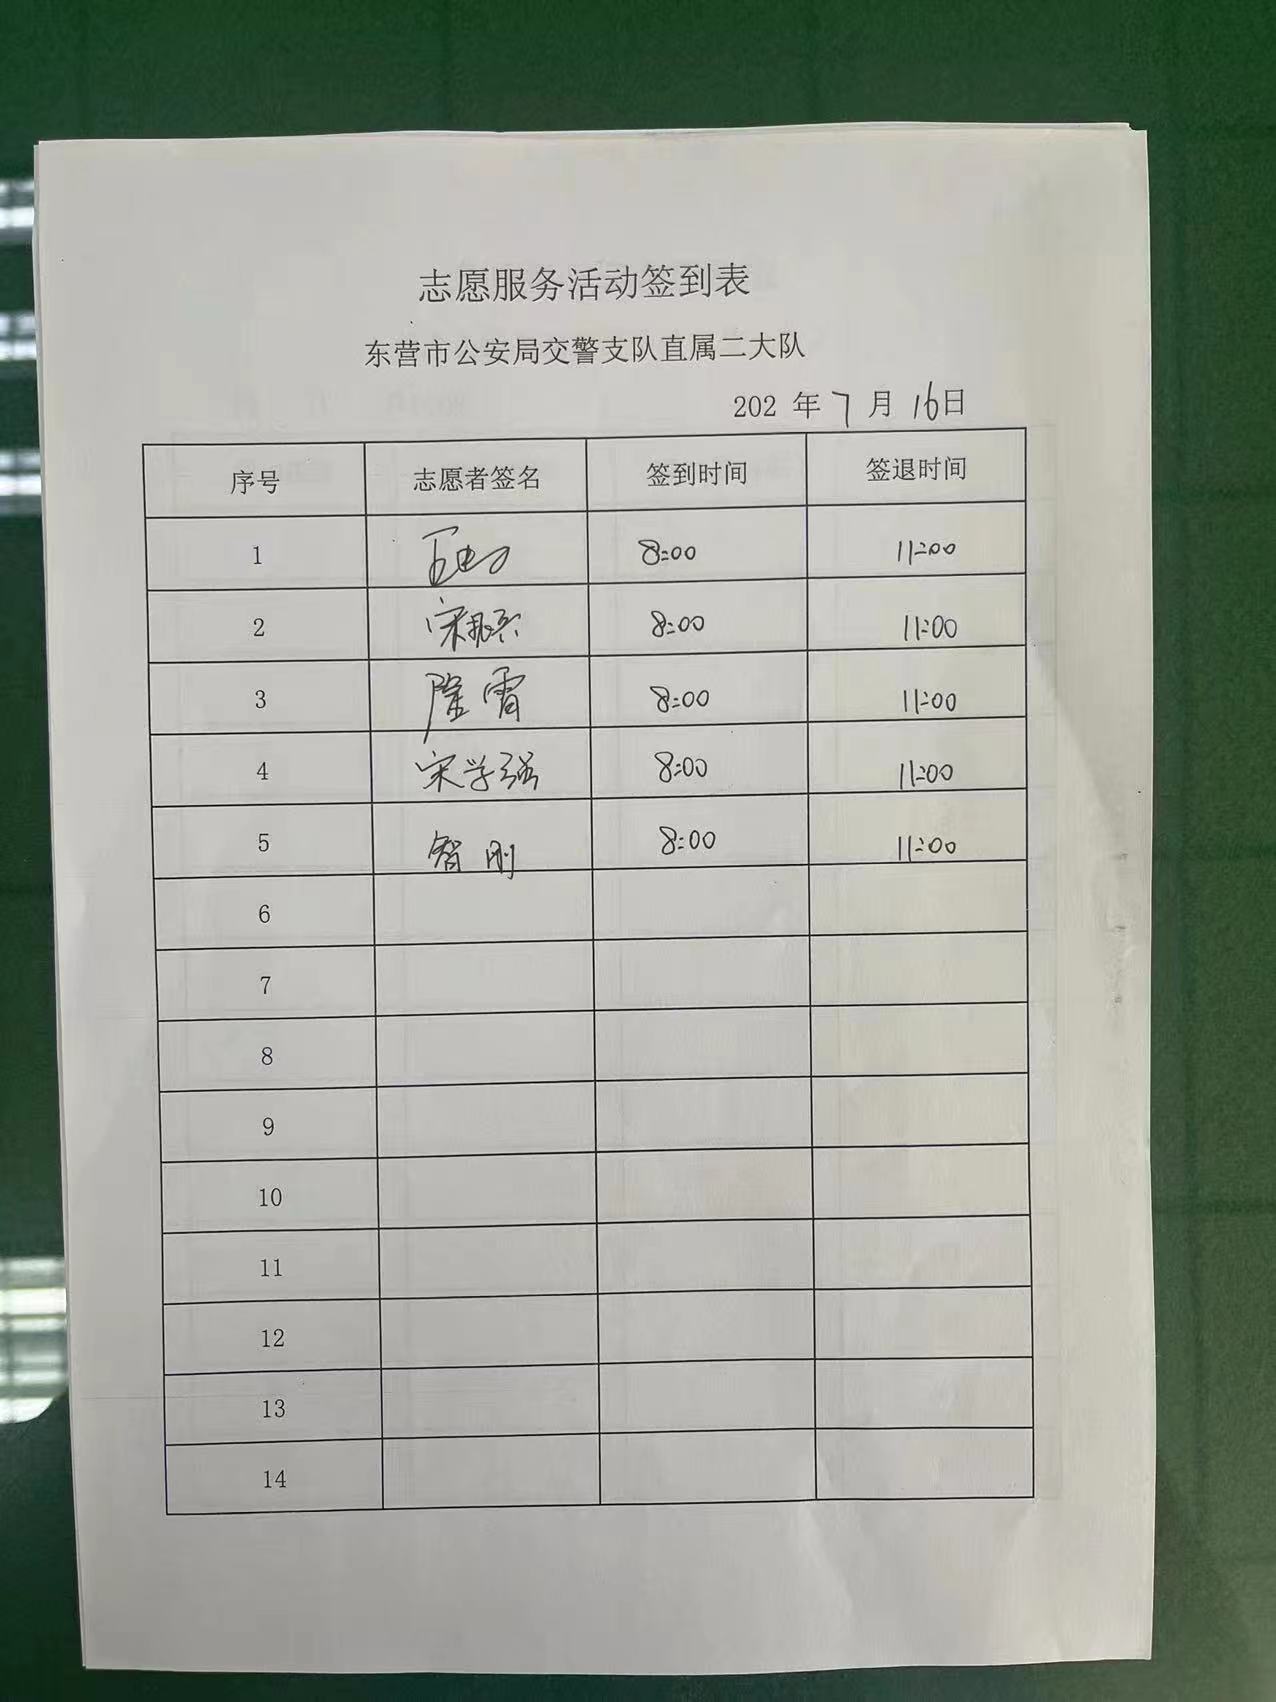 志愿服务活动签到表
东营市公安局交警支队直属二大队
202 年 7 月 16日
序号 志愿者签名 签到时间 签退时间
1 8:00 11:00
2 宋 8:00 11:00
3 隆霄 8:00 11:00
4 宋学强 8:00 11:00
5 智刚 8:00 11:00
6
7
8
9
10
11
12
13
14